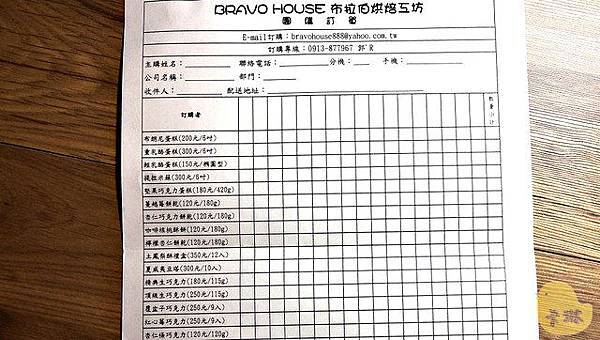 BRAVO HOUSE 布拉伯烘焙互坊
團購訂單
E-mail訂購：bravohouse888@yahoo.com.tw
訂購專線：0913-877967 郭'R
主購姓名： 聯絡電話： 分機： 手機：
公司名稱： 部門：
收件人： 配送地址：
訂購者 數量小計
布朗尼蛋糕(200元/6吋)
重乳酪蛋糕(300元/6吋)
輕乳酪蛋糕(150元/橢圓型)
提拉米蘇(300元/6吋)
堅果巧克力蛋糕(180元/420g)
蔓越莓餅乾(120元/180g)
杏仁巧克力餅乾(120元/180g)
咖啡核桃酥餅(120元/180g)
檸檬杏仁餅乾(120元/180g)
土鳳梨酥禮盒(350元/12入)
夏威夷豆塔(300元/10入)
經典生巧克力(180元/115g)
頂級生巧克力(250元/115g)
覆盆子巧克力(250元/9入)
紅心莓巧克力(250元/9入)
杏仁條巧克力(120元/120g)